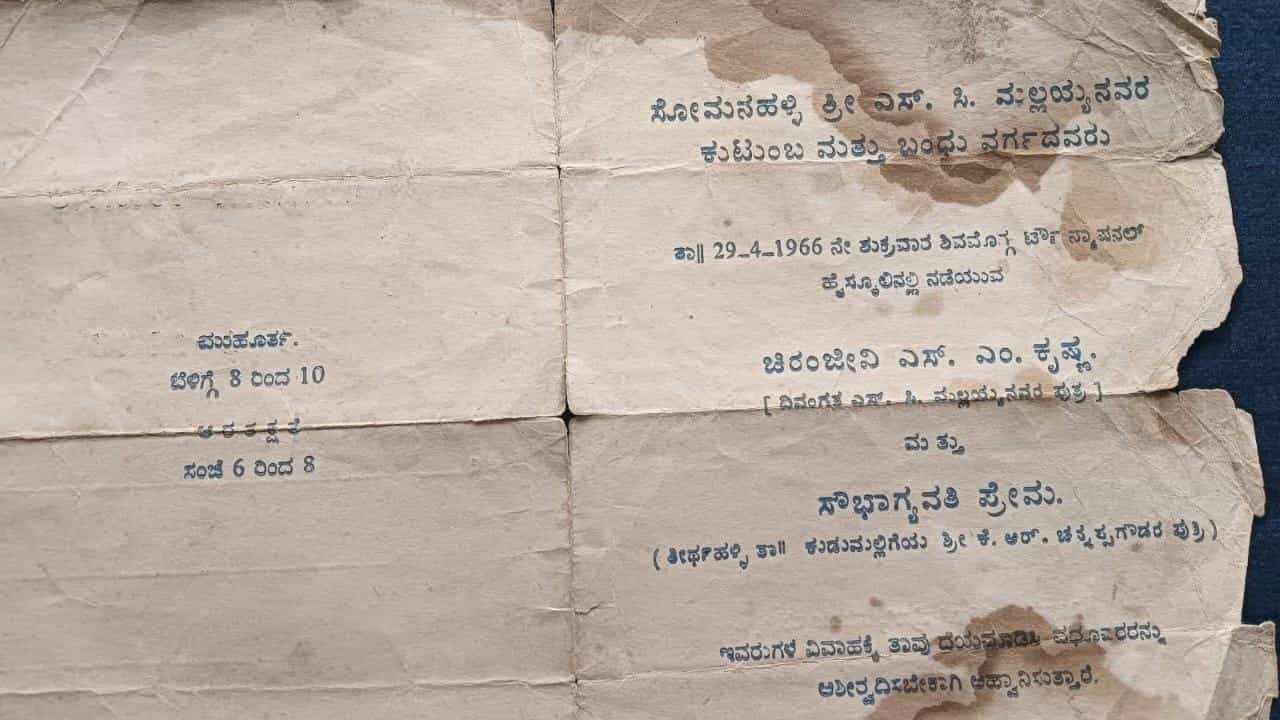 ಮುಹೂರ್ತ.
ಬೆಳಿಗ್ಗೆ 8 ರಿಂದ 10
ಆರತಕ್ಷತೆ
ಸಂಜೆ 6 ರಿಂದ 8
ಸೋಮನಹಳ್ಳಿ ಶ್ರೀ ಎಸ್. ಸಿ. ಮಲ್ಲಯ್ಯನವರ
ಕುಟುಂಬ ಮತ್ತು ಬಂಧು ವರ್ಗದವರು
ತಾ॥ 29-4-1966 ನೇ ಶುಕ್ರವಾರ ಶಿವಮೊಗ್ಗ ಟೌನ್ ನ್ಯಾಷನಲ್
ಹೈಸ್ಕೂಲಿನಲ್ಲಿ ನಡೆಯುವ
ಚಿರಂಜೀವಿ ಎಸ್. ಎಂ. ಕೃಷ್ಣ.
[ ದಿವಂಗತ ಎಸ್. ಸಿ. ಮಲ್ಲಯ್ಯನವರ ಪುತ್ರ ]
ಮತ್ತು
ಸೌಭಾಗ್ಯವತಿ ಪ್ರೇಮ.
( ತೀರ್ಥಹಳ್ಳಿ ತಾ॥ ಕುಡುಮಲ್ಲಿಗೆಯ ಶ್ರೀ ಕೆ. ಆರ್. ಚನ್ನಪ್ಪಗೌಡರ ಪುತ್ರಿ )
ಇವರುಗಳ ವಿವಾಹಕ್ಕೆ ತಾವು ದಯಮಾಡಿಸಿ ವಧೂವರರನ್ನು
ಆಶೀರ್ವದಿಸಬೇಕಾಗಿ ಆಹ್ವಾನಿಸುತ್ತಾರೆ.